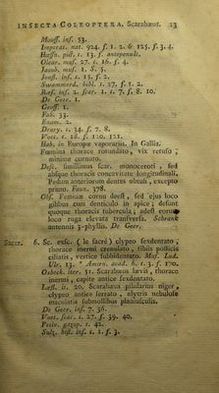 INSECTA COLEOPTERA. Scarabæus. 13
Mouff. inf. 53.
Imperat. nat. 924. f. 1. 2. & 125. f. 3. 4.
Olear. muf. 27. t. 16. f. 4.
Jacob. muf. t. 8. 5.
Jonst. inf. t. 15. f. 2.
Swammerd. bibl. t. 27. f. 1. 2.
Rœf. inf. 2. fcar. 1. t. 7. f. 8. 10.
De Geer. 1.
Geoff. 1.
Fab. 33.
Exam. 2.
Drury. 1. 34. f. 7. 8.
Voet. t. 18. f. 120. 121.
Hab. in Europæ vaporariis. In Gallia.
Fœmina thorace rotundato, vix retufo,
minime cornuto.
Defc. fimillimus fcar. monoceroti, fed
abfque thoracis concavitate longitudinali.
Pedum anteriorum dentes obtufi, excepto
primo. Faun. 378.
Obf. Femora cornu deeft, fed ejus loco
gibbus cum denticulo in apice; defunt
quoque thoracis tubercula; adeft eorum
loco ruga elevata tranfverfa. Schrank
antennis 3-phyllis. De Geer.
Sacer. 6. Sc. exfc. (le facré) clypeo fexdentato,
thorace inermi crenulato, tibiis pofticis
ciliatis, vertice fubbidentato. Muf. Lud.
Ulr. 13. * Amœn. acad. 6. 1. 3. f. 170.
Osbeck. iter. 51. Scarabæus lævis, thorace
inermi, capite antice fexdentato.
Lœfl. it. 20. Scarabæus pilularius niger,
clypeo antice ferrato, elytris nebulofe
maculatis fubmollibus planiufculis.
De Geer. inf. 7. 36.
Voet. fcar. 1. 27. f. 39. 40.
Petiv. gazop. t. 42.
Sulz. hift. inf. t. 1. f. 3.